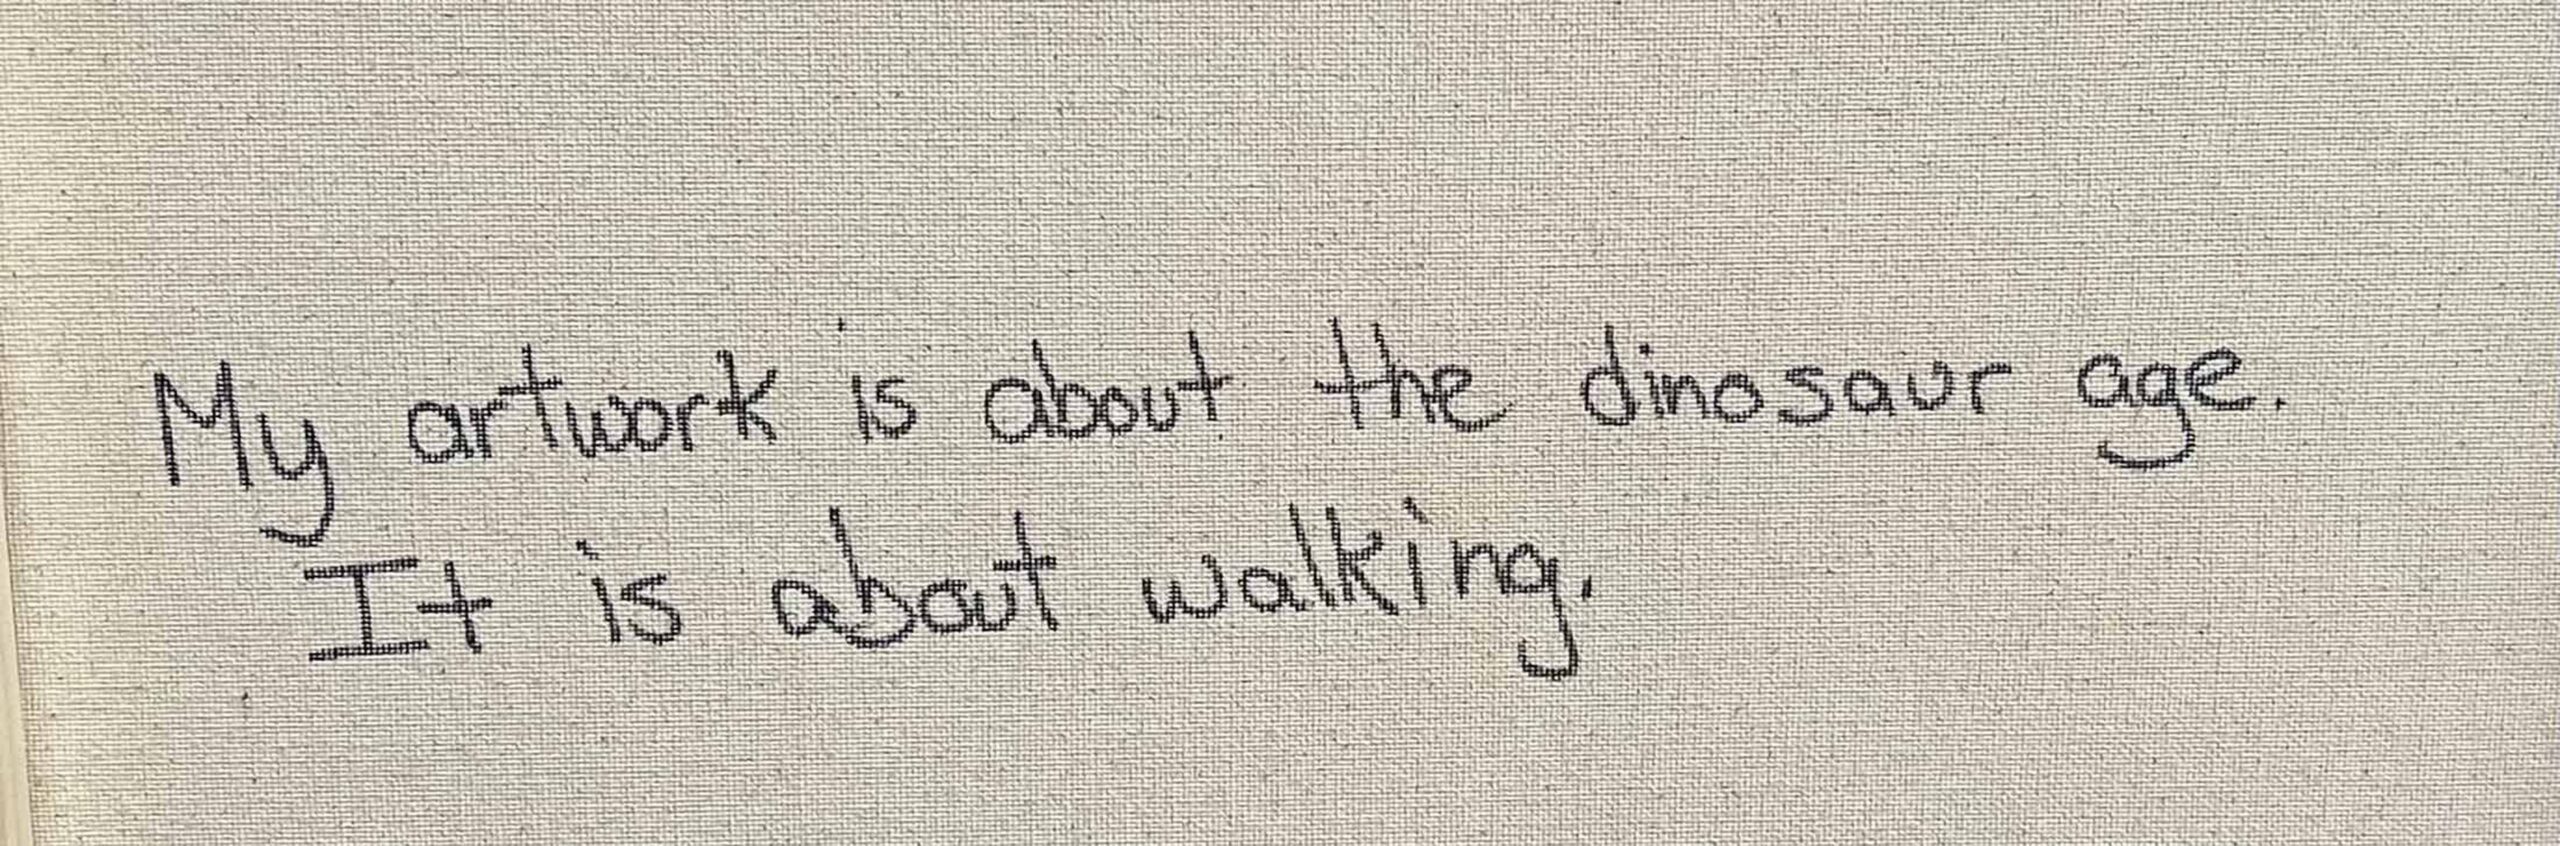 My artwork is about the dinosaur age.
It is about walking.